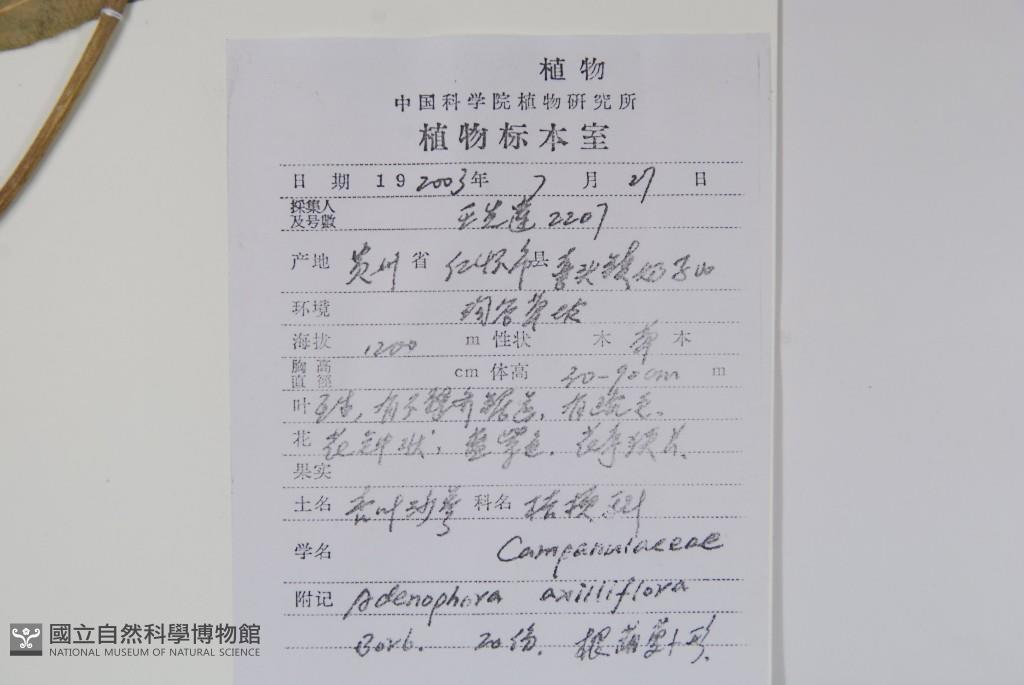 植物
中国科学院植物研究所
植物标本室
日 期 19 2003年 7 月 27 日
採集人
及号數 王先蓮 2207
产地 贵州 省 仁怀市县
环境
海拔 1200 m 性状 木 草 本
胸高
直徑 cm 体高 30-90cm m
叶 互生, 有不整齐锯齿, 有
花 花钟状, 蓝紫色, 花
果实
土名 叶沙参 科名 桔梗科
学名 Campanulaceae
附记 Adenophora axilliflora
Borb. 20份, 根葫蘆卜形.
國立自然科學博物館
NATIONAL MUSEUM OF NATURAL SCIENCE